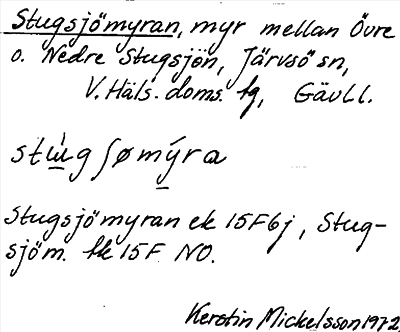 Stugsjömyran, myr mellan Övre
o. Nedre Stugsjön, Järvsö sn,
V. Häls. doms. tg, Gävll.
stu̱̍gʃømý̱ra
Stugsjömyran ek 15F6j, Stug-
sjöm. tk 15F NO.
Kerstin Mickelsson 1972